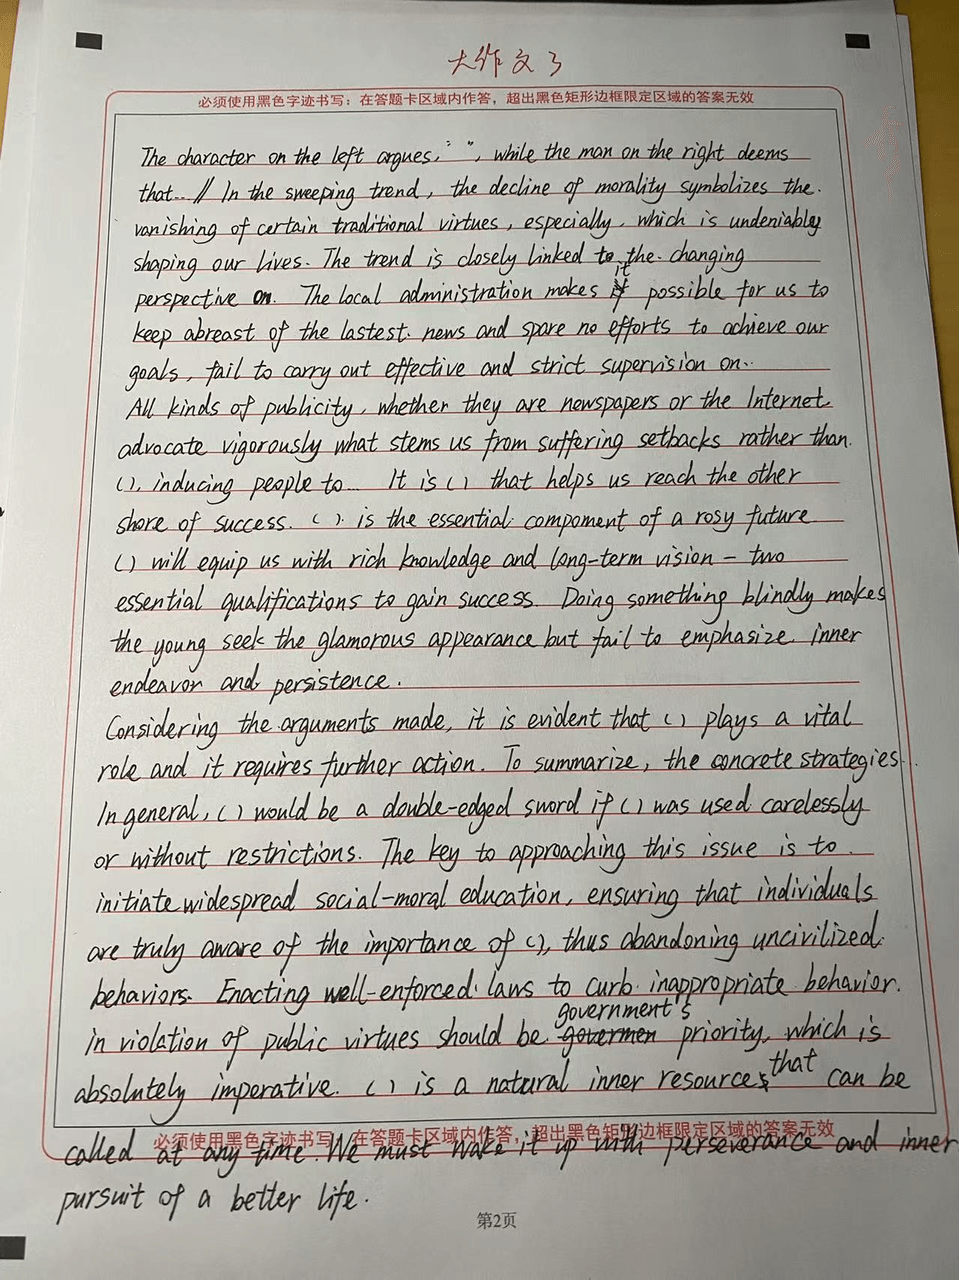 大作文3
必须使用黑色字迹书写：在答题卡区域内作答，超出黑色矩形边框限定区域的答案无效
The character on the left argues, " ", while the man on the right deems
that... // In the sweeping trend, the decline of morality symbolizes the
vanishing of certain traditional virtues, especially, which is undeniably
shaping our lives. The trend is closely linked to the changing
perspective on. The local administration makes it possible for us to
keep abreast of the lastest news and spare no efforts to achieve our
goals, fail to carry out effective and strict supervision on...
All kinds of publicity, whether they are newspapers or the Internet
advocate vigorously what stems us from suffering setbacks rather than
( ), inducing people to... It is ( ) that helps us reach the other
shore of success. ( ) is the essential compoment of a rosy future
( ) will equip us with rich knowledge and long-term vision – two
essential qualifications to gain success. Doing something blindly makes
the young seek the glamorous appearance but fail to emphasize inner
endeavor and persistence.
Considering the arguments made, it is evident that ( ) plays a vital
role and it requires further action. To summarize, the concrete strategies.
In general, ( ) would be a double-edged sword if ( ) was used carelessly
or without restrictions. The key to approaching this issue is to
initiate widespread social-moral education, ensuring that individuals
are truly aware of the importance of ( ), thus abandoning uncivilized
behaviors. Enacting well-enforced laws to curb inappropriate behavior
in violation of public virtues should be government's priority, which is
absolutely imperative. ( ) is a natural inner resources that can be
called at any time. We must wake it up with perseverance and inner
必须使用黑色字迹书写：在答题卡区域内作答，超出黑色矩形边框限定区域的答案无效
pursuit of a better life.
第2页